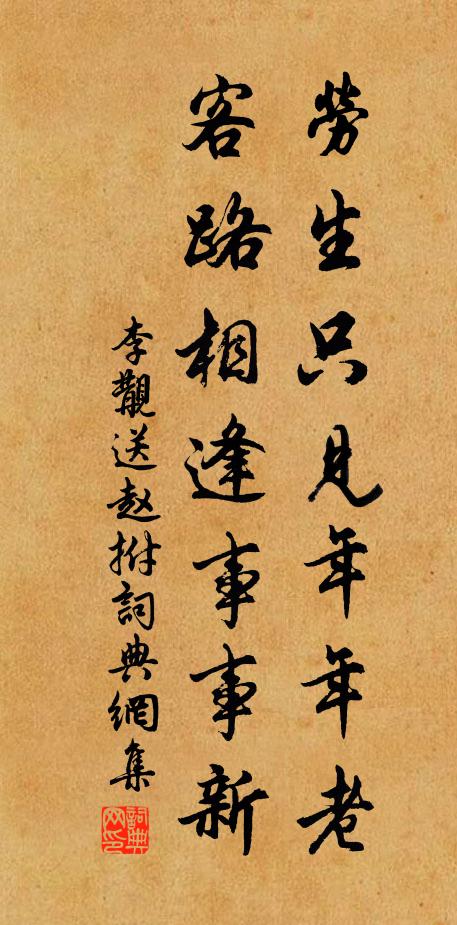 勞生只見年年老
客路相逢事事新
李覯送赵拊詞典網集
詞典网印